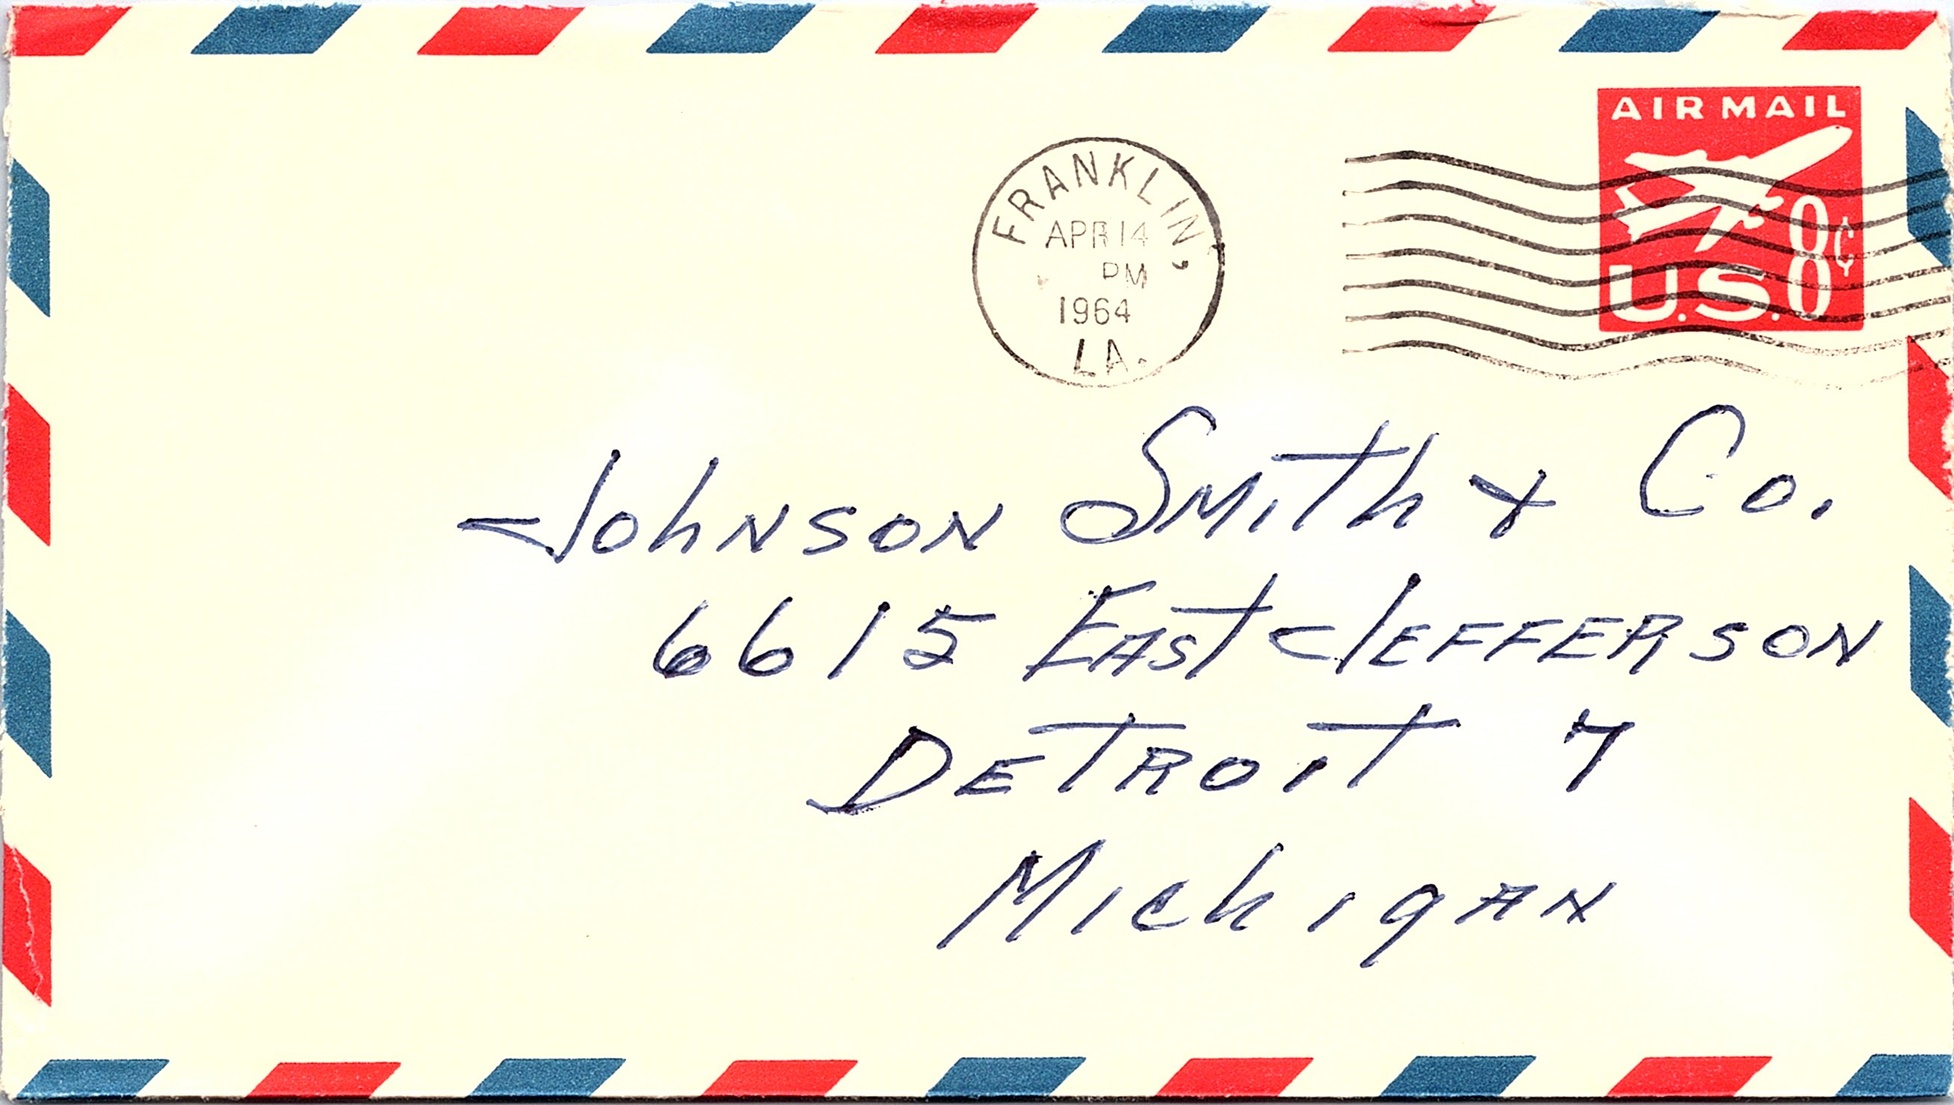 AIR MAIL
8¢
U.S.
FRANKLIN,
APR 14
PM
1964
LA.
Johnson Smith & Co.
6615 East Jefferson
Detroit 7
Michigan